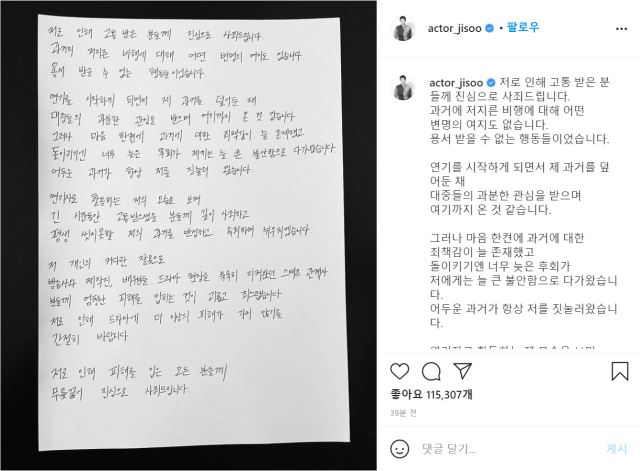 저로 인해 고통 받은 분들께 진심으로 사죄드립니다.
과거의 저지른 비행에 대해 어떤 변명의 여지도 없습니다.
용서 받을 수 없는 행동들이었습니다.
연기를 시작하게 되면서 제 과거를 덮어둔 채
대중들의 과분한 관심을 받으며 여기까지 온 것 같습니다.
그러나 마음 한켠에 과거에 대한 죄책감이 늘 존재했고
돌이키기엔 너무 늦은 후회가 저에게는 늘 큰 불안함으로 다가왔습니다.
어두운 과거가 항상 저를 짓눌러 왔습니다.
연기자로 활동하는 제 모습을 보며
긴 시간동안 고통받으셨을 분들께 깊이 속죄하고
평생 씻지못할 저의 과거를 반성하고 뉘우치겠습니다.
저 개인의 커다란 잘못으로
방송사와 제작진, 배우들, 드라마 현장을 묵묵히 지켜왔던 스태프 관계자
분들께 엄청난 피해를 입히는 것이 괴롭고 죄스럽습니다.
저로 인해 드라마에 더 이상의 피해가 가지 않기를
간절히 바랍니다.
저로 인해 피해를 입은 모든 분들께
무릎꿇어 진심으로 사죄드립니다.
actor_jisoo • 팔로우
actor_jisoo 저로 인해 고통 받은 분
들께 진심으로 사죄드립니다.
과거에 저지른 비행에 대해 어떤
변명의 여지도 없습니다.
용서 받을 수 없는 행동들이었습니다.
연기를 시작하게 되면서 제 과거를 덮
어둔 채
대중들의 과분한 관심을 받으며
여기까지 온 것 같습니다.
그러나 마음 한켠에 과거에 대한
죄책감이 늘 존재했고
돌이키기엔 너무 늦은 후회가
저에게는 늘 큰 불안함으로 다가왔습니다.
어두운 과거가 항상 저를 짓눌러왔습니
다.
좋아요 115,307개
39분 전
댓글 달기...
게시